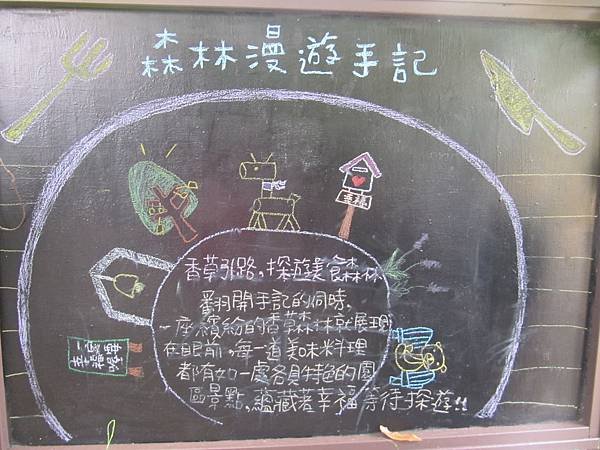 森林漫遊手記
幸福
香草引路，探遊美食森林
翻開手記的同時，
一座繽紛的香草森林就展現
在眼前，每一道美味料理
都有如一處各具特色的園
區景點，蘊藏著幸福等待探遊!!